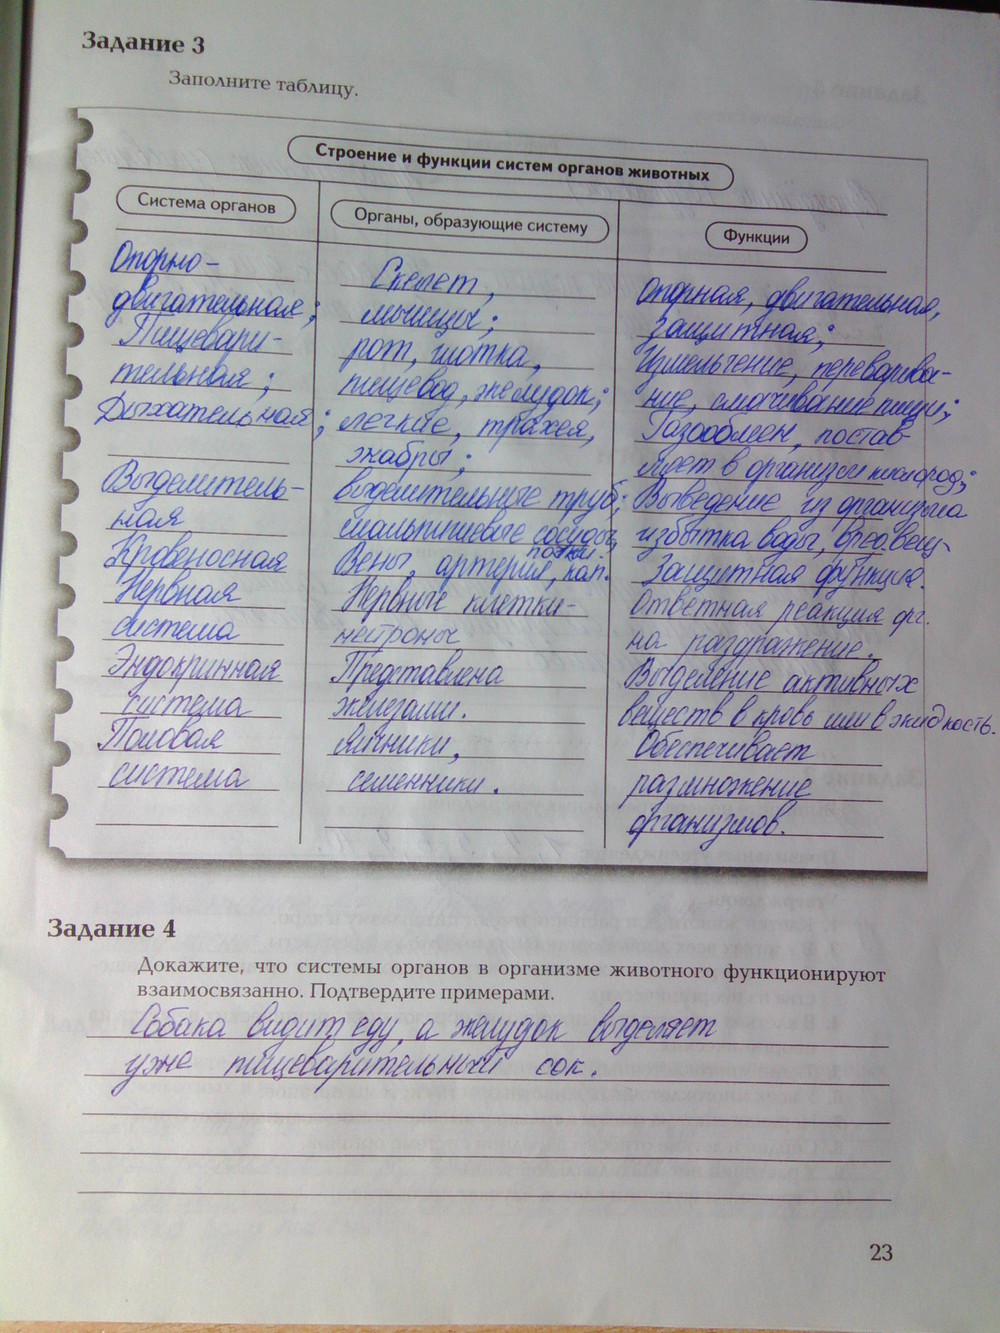 Задание 3
Заполните таблицу.
Строение и функции систем органов животных
Система органов
Органы, образующие систему
Функции
Опорно-
двигательная;
Скелет,
мышцы;
Опорная, двигательная,
защитная;
Пищевари-
тельная;
рот, глотка,
пищевод, желудок;
Измельчение, перевари
ние, смачивание пищи;
Дыхательная;
легкие, трахея,
жабры;
Газообмен, постав-
ляет в организм кислород;
Выделитель-
ная
выделительные труб;
мальпигиевые сосуды,
почки.
Выведение из организма
избытка воды, вред вещ-
Кровеносная
Вены, артерия, кап.
Защитная функция.
Нервная
система
Нервные клетки-
нейроны
Ответная реакция орг.
на раздражение.
Эндокринная
система
Представлена
железами.
Выделение активных
веществ в кровь или в жидкость.
Половая
система
Яичники,
семенники.
Обеспечивает
размножение
организмов.
Задание 4
Докажите, что системы органов в организме животного функционируют
взаимосвязанно. Подтвердите примерами.
Собака видит еду, а желудок выделяет
уже пищеварительный сок.
23